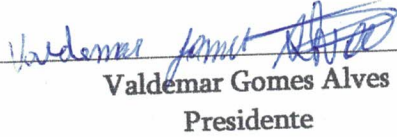 Valdemar Gomes Alves
Valdemar Gomes Alves
Presidente